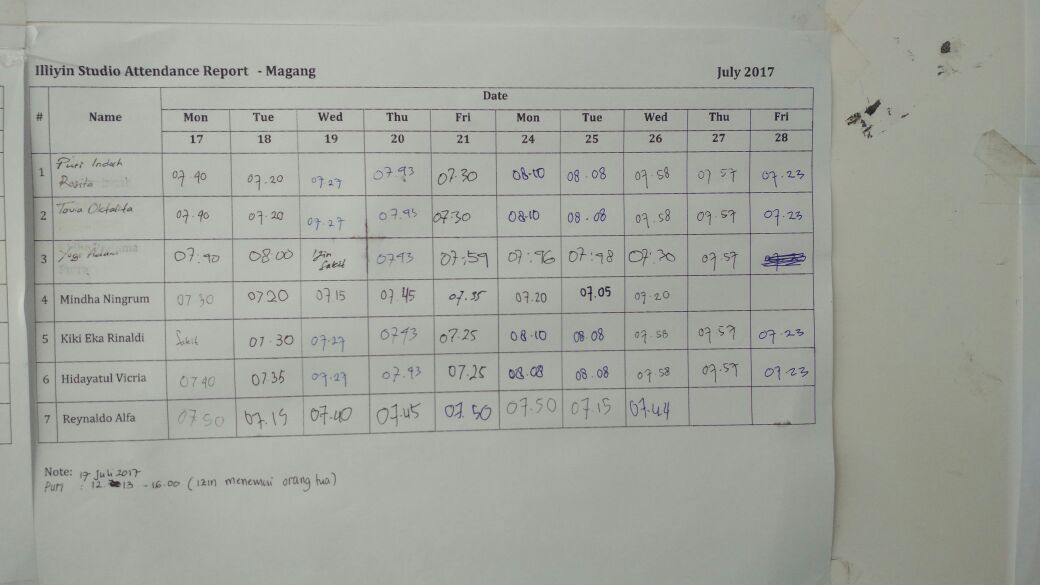 Illiyin Studio Attendance Report - Magang July 2017
# Name Date
Mon Tue Wed Thu Fri Mon Tue Wed Thu Fri
17 18 19 20 21 24 25 26 27 28
1 Puri Indah Rosita 07.40 07.20 07.27 07.43 07.30 08.10 08.08 07.58 07 57 07.23
2 Tovia Oktalita 07.40 07.20 07.27 07.43 07:30 08.10 08.08 07.58 07.57 07.23
3 Yugi 07:40 08.00 Izin Sakit 0743 07:59 07:46 07:48 07:30 07.57
4 Mindha Ningrum 07 30 0720 07.15 07.45 07.35 07.20 07.05 07.20
5 Kiki Eka Rinaldi Sakit 07.30 07.27 0743 07.25 08.10 08.08 07.58 07.57 07.23
6 Hidayatul Vicria 0740 07.35 07.27 07.43 07.25 08.08 08.08 07 58 07.57 07.23
7 Reynaldo Alfa 07 50 07.15 07.40 07.45 07.50 07.50 07.15 07.44
Note: 17 Juli 2017
Puri : 12. 13 - 16.00 (izin menemui orang tua)